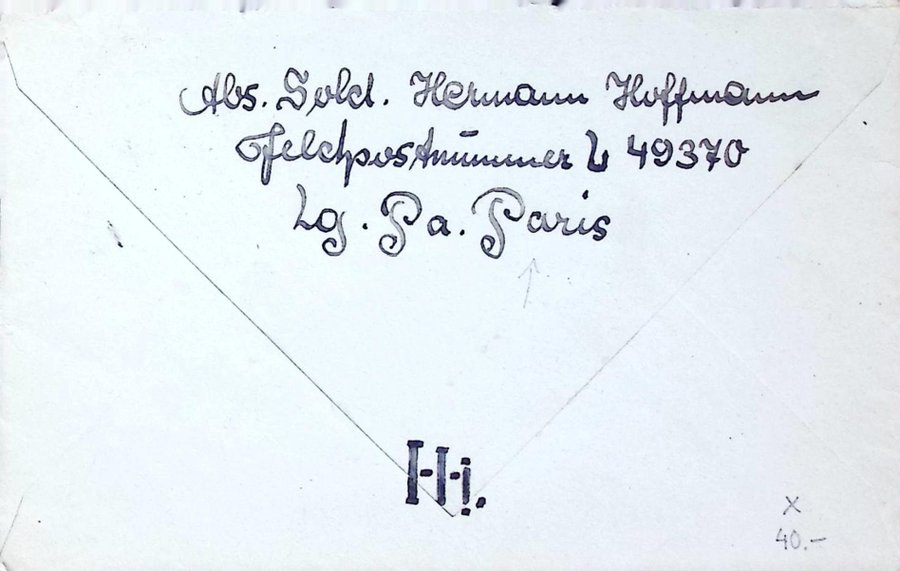 Abs. Sold. Hermann Hoffmann
Feldpostnummer L 49370
Lg. Pa. Paris
Hi.
x
40.-